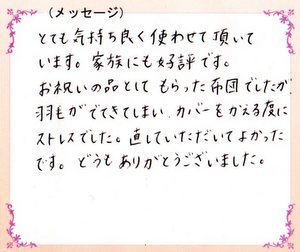 （メッセージ）
とても気持ち良く使わせて頂いて
います。家族にも好評です。
お祝いの品として もらった布団でしたが
羽毛がでてきてしまい カバーをかえる度に
ストレスでした。直していただいてよかった
です。どうもありがとうございました。